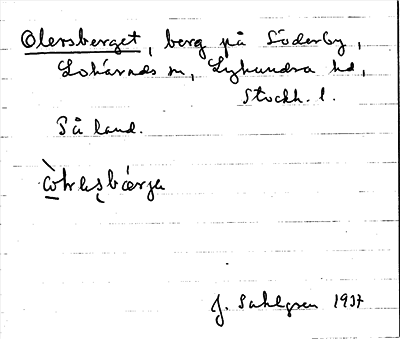 Olersberget, berg på Söderby,
Lohärads sn, Lyhundra hd,
Stockh. l.
På land.
J. Sahlgren 1937